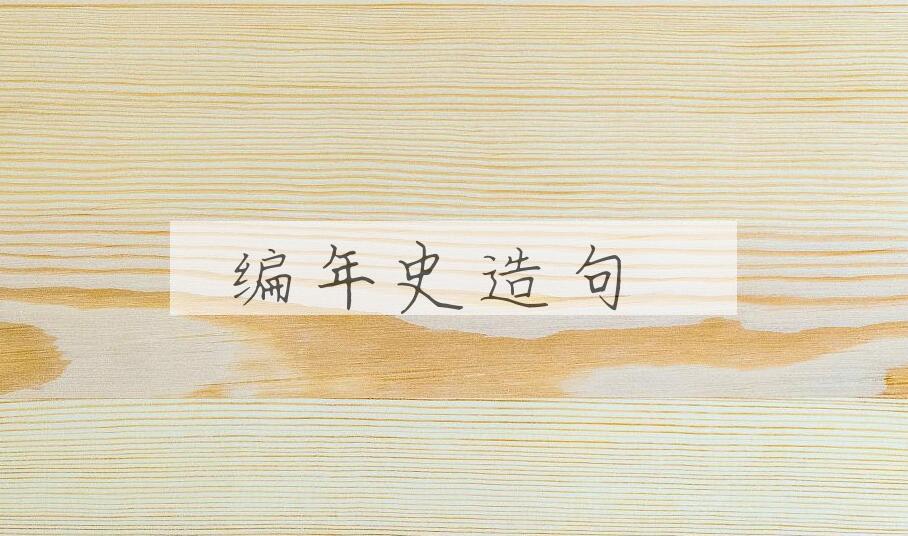 编年史造句